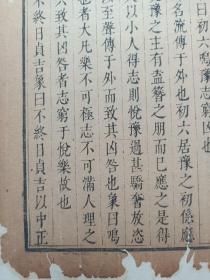 曰初六鳴豫志窮凶也
名流傳于外也初六居豫之初係應
豫之主有盍簪之朋而已應之是得
以小人得志則悅豫過甚驕奢放恣
至聲傳于外而致其凶咎也象曰鳴
也者大凡樂不可極志不可滿人理之
六致其凶咎者志窮于悅樂故也
不終日貞吉象曰不終日貞吉以中正